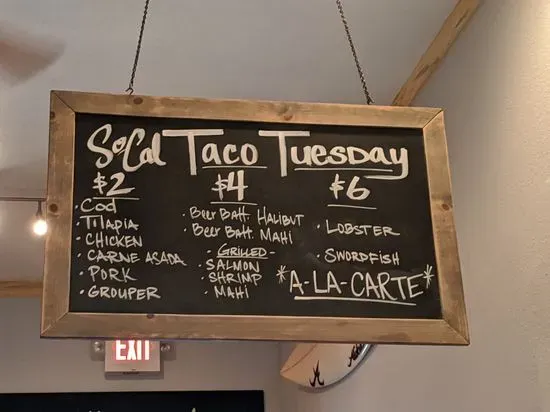 SoCal Taco Tuesday
$2
· Cod
· Tilapia
· Chicken
· Carne Asada
· Pork
· Grouper
$4
· Beer Batt. Halibut
· Beer Batt. Mahi
- Grilled -
· Salmon
· Shrimp
· Mahi
$6
· Lobster
· Swordfish
*A-LA-CARTE*
EXIT